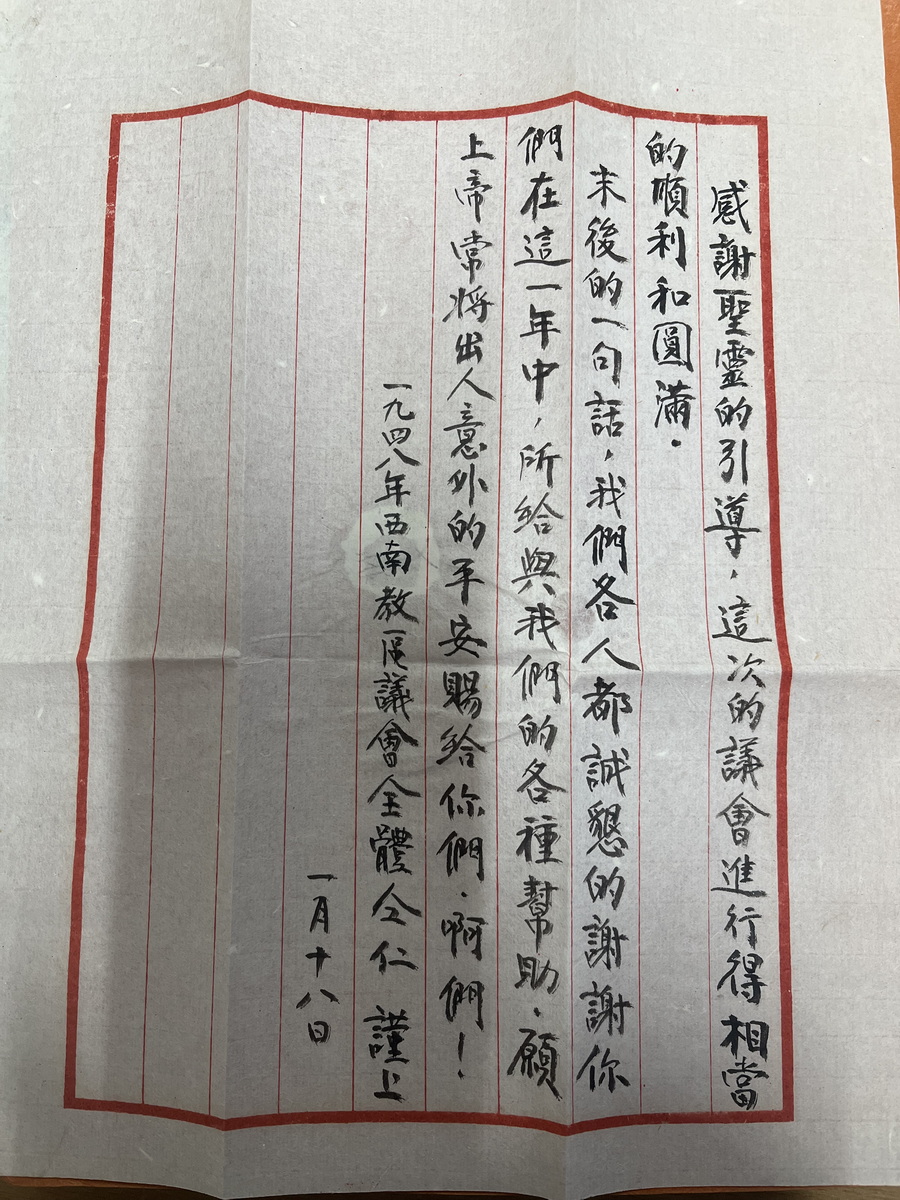 感謝聖靈的引導，這次的議會進行得相當
的順利和圓滿．
末後的一句話，我們各人都誠懇的謝謝你
們在這一年中，所給與我們的各種幫助．願
上帝常將出人意外的平安賜給你們．啊們！
一九四八年西南教區議會全體仝仁 謹上
一月十八日